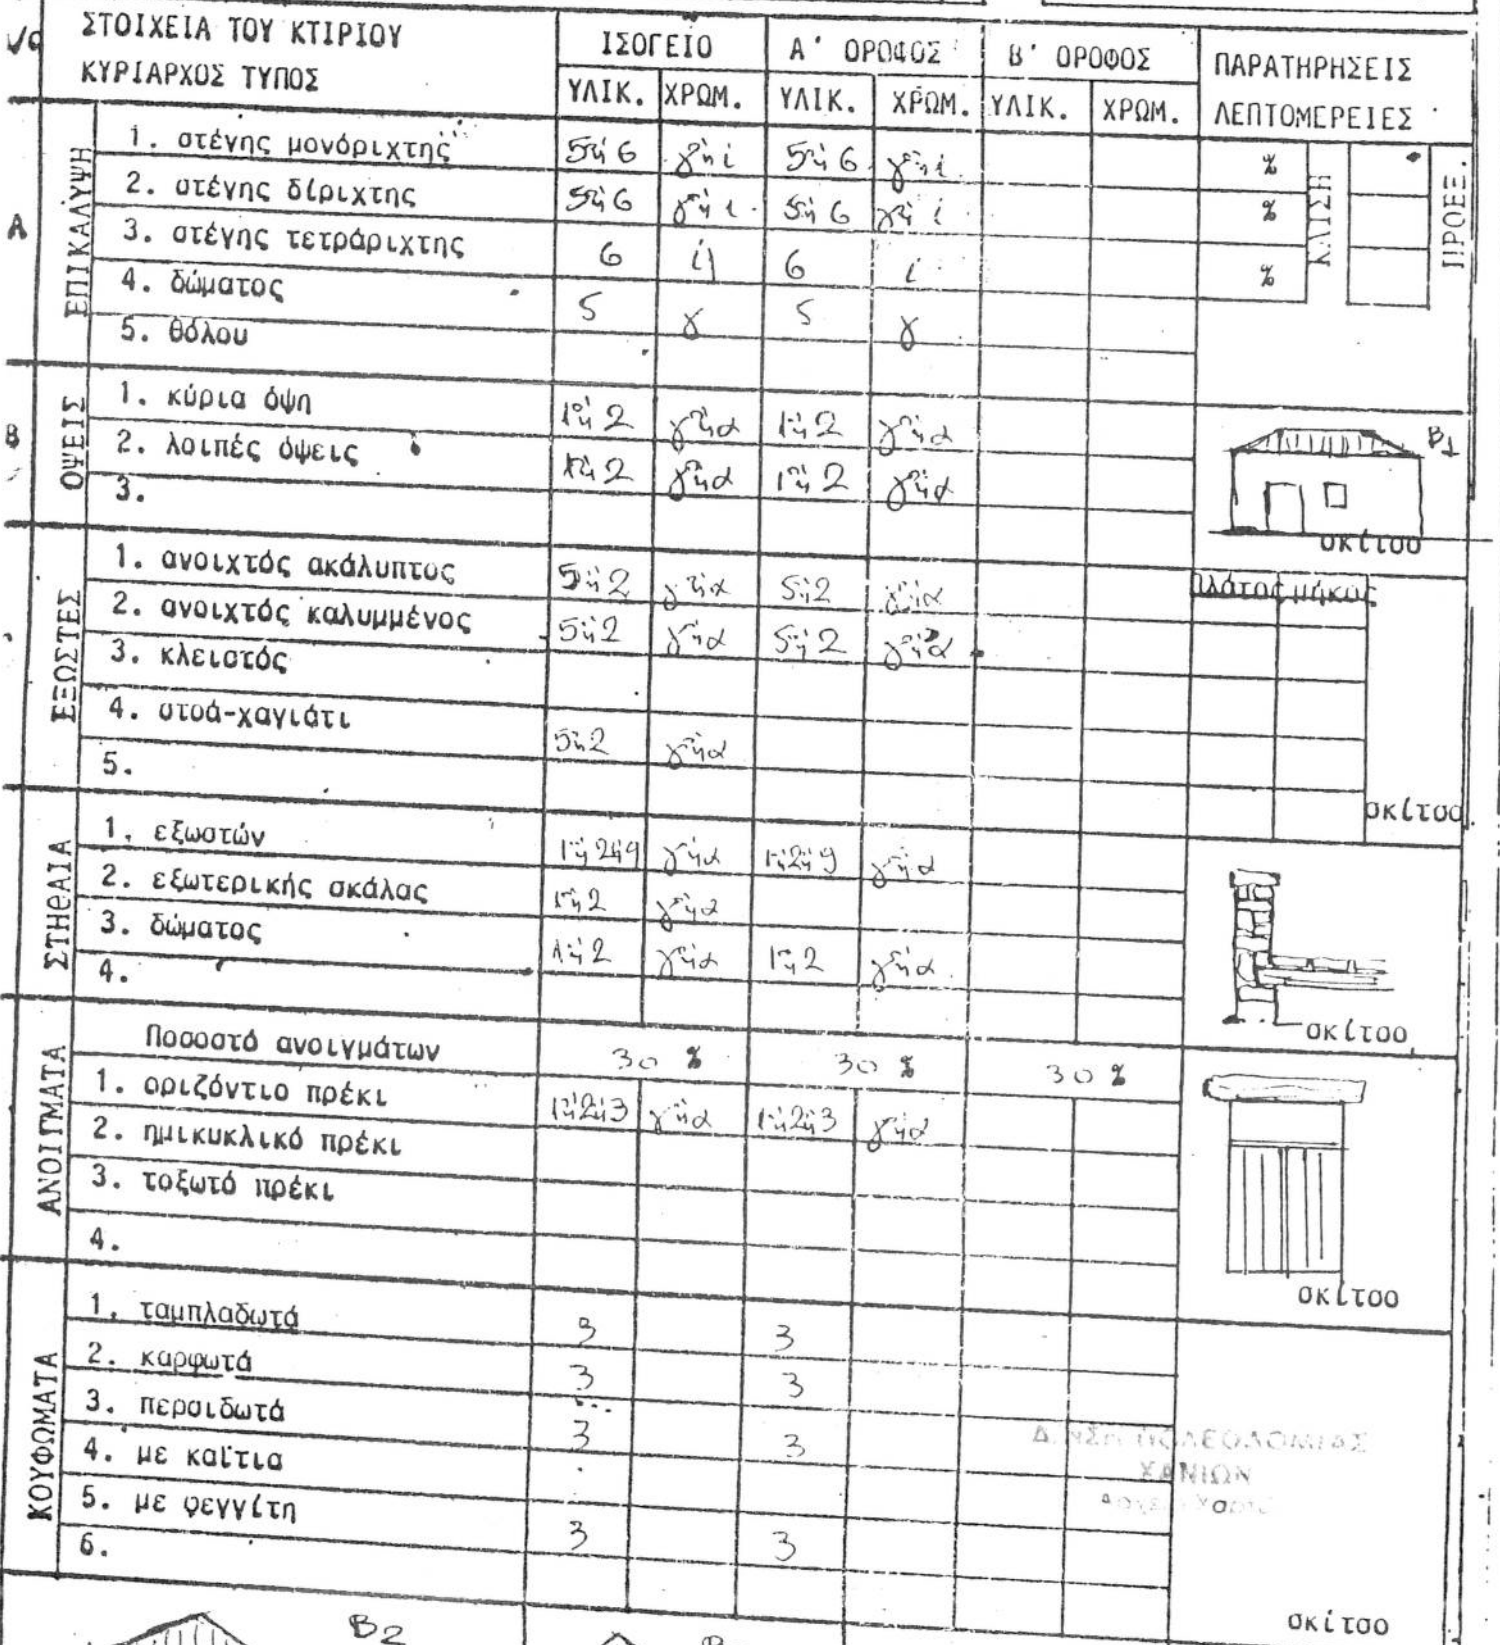 ΣΤΟΙΧΕΙΑ ΤΟΥ ΚΤΙΡΙΟΥ ΙΣΟΓΕΙΟ Α' ΟΡΟΦΟΣ Β' ΟΡΟΦΟΣ ΠΑΡΑΤΗΡΗΣΕΙΣ
ΚΥΡΙΑΡΧΟΣ ΤΥΠΟΣ ΥΛΙΚ. ΧΡΩΜ. ΥΛΙΚ. ΧΡΩΜ. ΥΛΙΚ. ΧΡΩΜ. ΛΕΠΤΟΜΕΡΕΙΕΣ
Α ΕΠΙΚΑΛΥΨΗ
1. στέγης μονόριχτης 5 ή 6 γ ή ι 5 ή 6 γ ή ι % ΚΛΙΣΗ ΠΡΟΕΞ.
2. στέγης δίριχτης 5 ή 6 γ ή ι 5 ή 6 γ ή ι %
3. στέγης τετράριχτης 6 ι 6 ι %
4. δώματος 5 γ 5 γ
5. θόλου
Β ΟΨΕΙΣ
1. κύρια όψη 1 ή 2 γ ή α 1 ή 2 γ ή α Β1
2. λοιπές όψεις 1 ή 2 γ ή α 1 ή 2 γ ή α
3.
σκίτσο
ΕΞΩΣΤΕΣ
1. ανοιχτός ακάλυπτος 5 ή 2 γ ή α 5 ή 2 γ ή α πλάτος μήκος
2. ανοιχτός καλυμμένος 5 ή 2 γ ή α 5 ή 2 γ ή α
3. κλειστός
4. στοά-χαγιάτι 5 ή 2 γ ή α
5.
σκίτσο
ΣΤΗΘΑΙΑ
1. εξωστών 1 ή 2 ή 9 γ ή α 1 ή 2 ή 9 γ ή α
2. εξωτερικής σκάλας 1 ή 2 γ ή α
3. δώματος 1 ή 2 γ ή α 1 ή 2 γ ή α
4.
σκίτσο
ΑΝΟΙΓΜΑΤΑ
Ποσοστό ανοιγμάτων 30 % 30 % 30 %
1. οριζόντιο πρέκι 1 ή 2 ή 3 γ ή α 1 ή 2 ή 3 γ ή α
2. ημικυκλικό πρέκι
3. τοξωτό πρέκι
4.
σκίτσο
ΚΟΥΦΩΜΑΤΑ
1. ταμπλαδωτά 3 3
2. καρφωτά 3 3
3. περσιδωτά 3 3
4. με καΐτια
5. με φεγγίτη 3 3
6.
ΠΟΛΕΟΔΟΜΙΑΣ
ΧΑΝΙΩΝ
σκίτσο
Β2